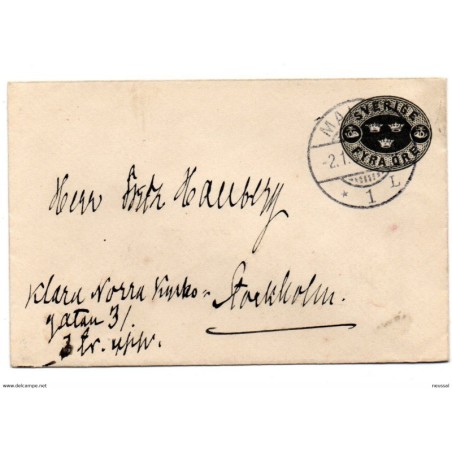 SVERIGE
FYRA ÖRE
MAL
-2.1
* 1 L
Herr Fritz Hauberg
Klara Norra Kyrko=
gatan 31
3 tr. upp.
Stockholm.
www.delcampe.net
neussal